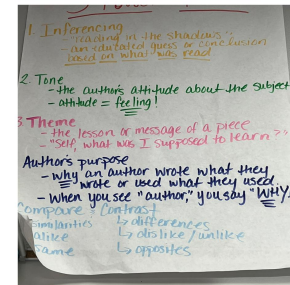 1. Inferencing
- "reading in the shadows"
- an educated guess or conclusion
based on what was read
2. Tone
- the author's attitude about the subject
- attitude = feeling!
3. Theme
- the lesson or message of a piece
- "Self, what was I supposed to learn?"
Author's purpose
- why an author wrote what they
wrote or used what they used
- When you see "author," you say "WHY."
Compare & Contrast
Similarities ↳ differences
alike ↳ dislike / unlike
same ↳ opposites